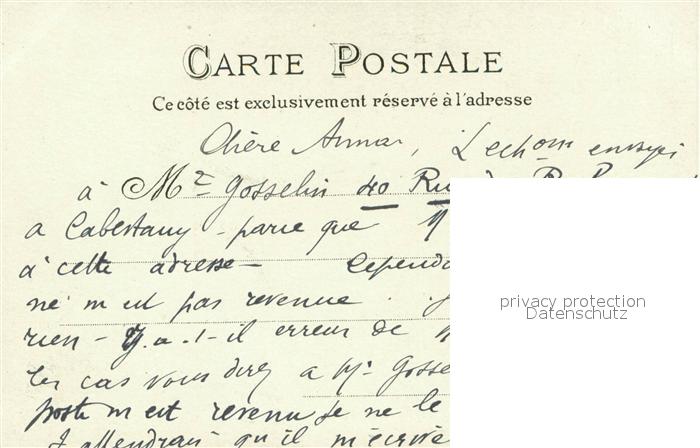 CARTE POSTALE
Ce côté est exclusivement réservé à l'adresse
Chère Anna, L'echom envoyé
à Mr Gosselin 40 Ru
a Cabestany - parce que
à cette adresse - Cependa
ne m est pas revenue.
rien - Y.a.t-il erreur de
les cas vous direz a Mr Gosse
poste m est revenu je ne le
J attendrai qu'il m'écrive
privacy protection
Datenschutz